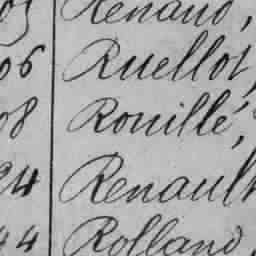 Renaud,
06 Ruellot,
08 Rouillé,
24 Renault
44 Rolland,